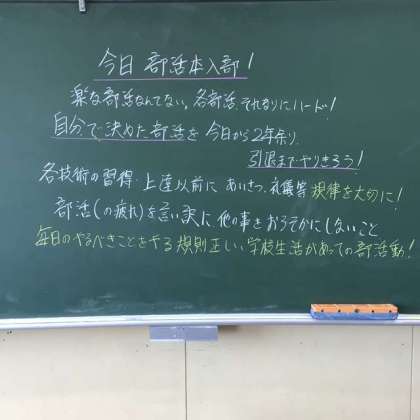 今日 部活本入部!
楽な部活なんてない。各部活、それなりにハード!
自分で決めた部活を今日から2年余り、
引退までやりきろう!
各技術の習得・上達以前に あいさつ、礼儀等 規律を大切に!
部活(の疲れ)を言い訳に他の事をおろそかにしないこと
毎日のやるべきことをやる規則正しい学校生活があっての部活動!